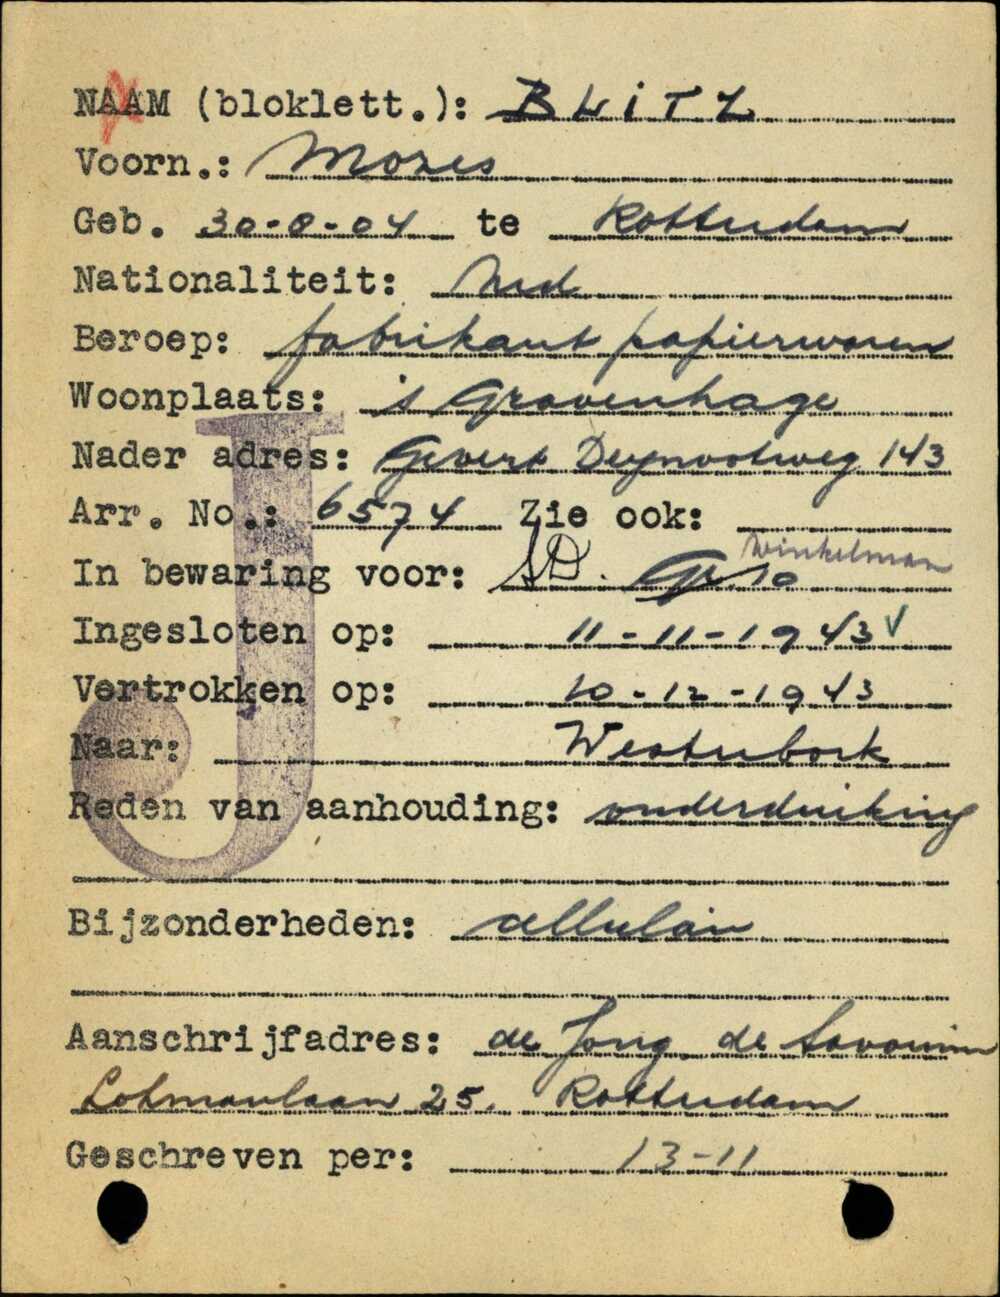 NAAM (bloklett.): BLITZ
Voorn.: Mozes
Geb. 30-8-04 te Rotterdam
Nationaliteit: Ned
Beroep: fabrikant papierwaren
Woonplaats: 's Gravenhage
Nader adres: Gevers Deynootweg 143
Arr. No.: 6574 Zie ook:
Winkelman
In bewaring voor: SD. Gr. 10
Ingesloten op: 11-11-1943
Vertrokken op: 10-12-1943
Naar: Westerbork
Reden van aanhouding: onderduiking
Bijzonderheden: cellulair
Aanschrijfadres: de Jong de Savornin
Lohmanlaan 25. Rotterdam
Geschreven per: 13-11
J